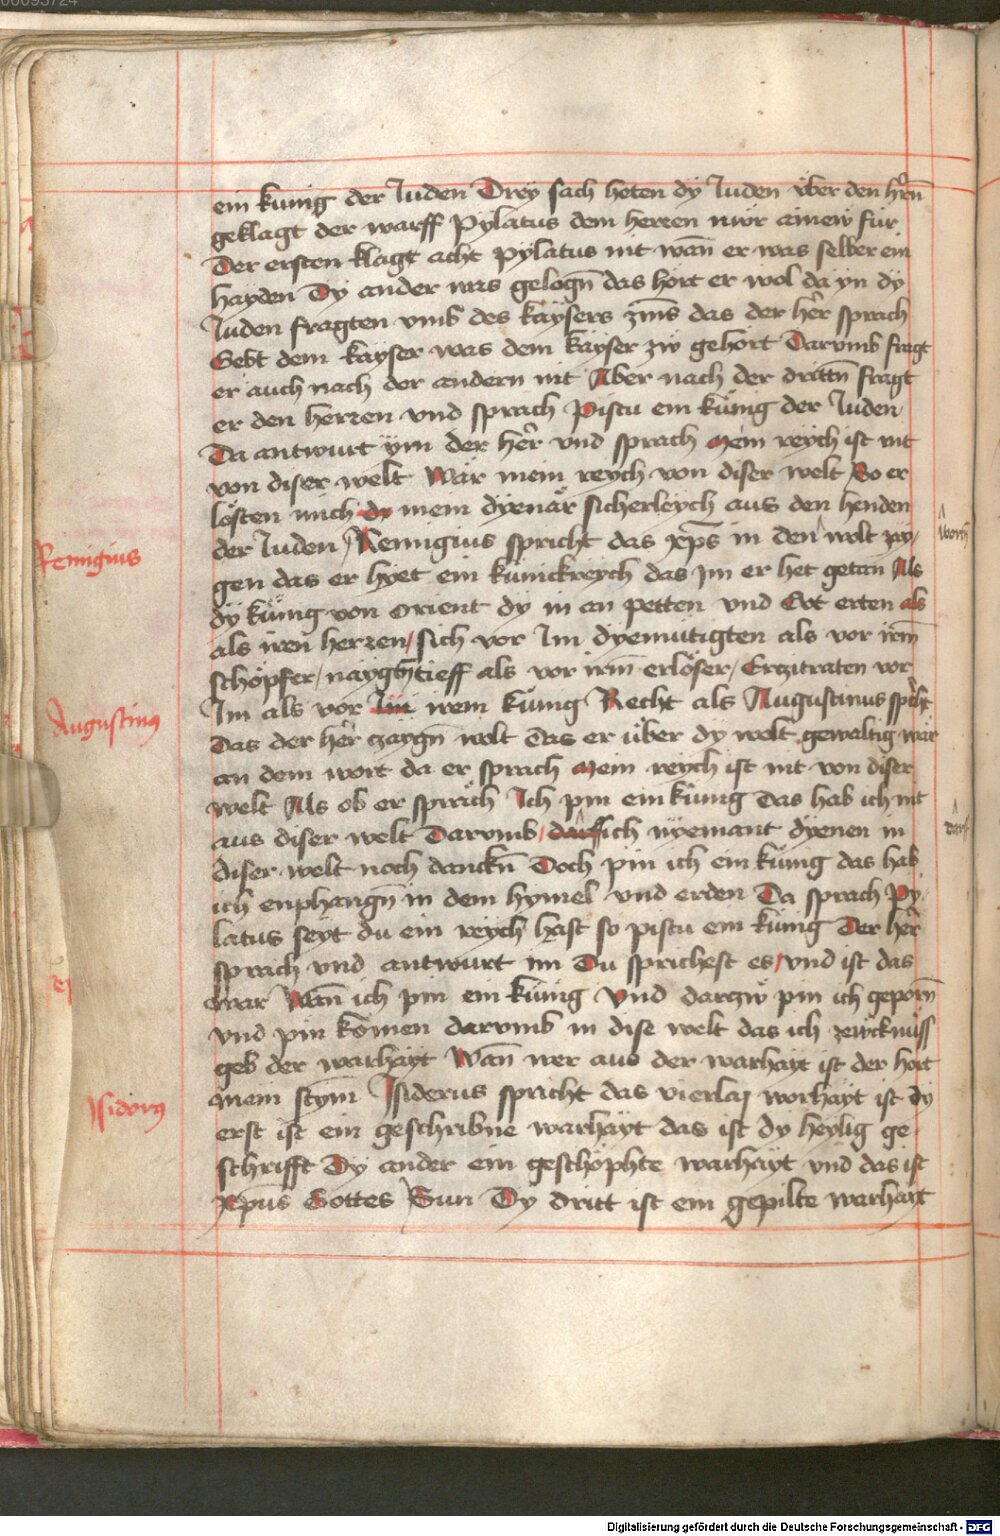 ein kunig der Juden Drey sach heten dy Juden über den hr̄n
geklagt der warff Pylatus dem herren nwr ainew für
Der ersten klagt acht pylatus nit wan̄ er was selber ein
hayden Dy ander was gelogn̄ das hort er wol da yn dy
Juden fragten vmb des kaysers zins das der her̄ sprach
Gebt dem kayser was dem kayser zw gehört Darvmb fragt
er auch nach der andern nit Aber nach der drittn̄ fragt
er den herren vnd sprach Pistu ein künig der Juden
Da antwurt ym der her̄ vnd sprach mein reych ist nit
von diser welt Wär mein reych von diser welt So er
lösten mich dy mein dyenär sicherleych aus den henden
der Juden / Remigius spricht das xp̄s in den wolt zay
Remigius
wortn̄
gen das er hyet ein künickreych das Im er het getan Als
dy künig von orient dy in an petten vnd Got erten als
als iren herren / sich vor Im dyemütigten als vor irm̄
schöpfer / naygtn̄ tieff als vor irm̄ erlöser / Erczitraten vor
Im als vor Im irem künig Recht als Augustinus spricht
Augustinus
Das der her̄ czaygn̄ wolt das er über dy welt gewaltig wär
an dem wort da er sprach mein reych ist nit von diser
welt Als ob er spräch Ich pin ein künig Das hab ich nit
aus diser welt Darvmb / darff ich nyemant dyenen in
darff
diser welt noch danckn̄ Doch pin ich ein künig das hab
ich enphangn̄ in dem hymel vnd erden Da sprach Py
latus seyt du ein reych hast so pistu ein künig Der her̄
sprach vnd antwurt im Du sprichest es / vnd ist das
war Wan̄ ich pin ein künig Vnd darzw pin ich geporn̄
vnd pin komen darvmb in dise welt das ich zewcknüss
geb der warhayt Wan̄ wer aus der warhayt ist der hort
mein stym̄ Isiderus spricht das vierlaj worhayt ist Dy
Isidorus
erst ist ein geschribne warhayt das ist dy heylig ge
schrifft Dy ander ein geschöphte warhayt vnd das ist
xp̄us Gottes Sun Dy dritt ist ein gepilte warhayt
Digitalisierung gefördert durch die Deutsche Forschungsgemeinschaft - DFG